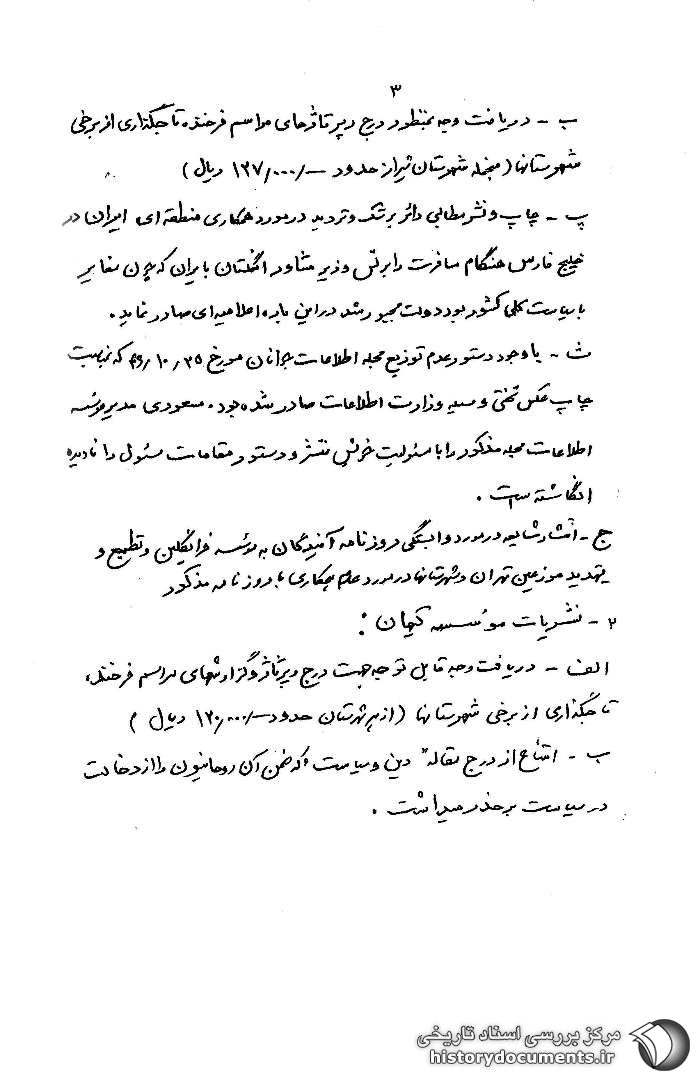 ۳
ب - دریافت وجه بمنظور درج رپرتاژهای مراسم فرخنده تاجگذاری از برخی
شهرستانها (منجمله شهرستان شیراز حدود -/۱۲۷/۰۰۰ ریال)
پ - چاپ و نشر مطالبی دائر بر شک و تردید در مورد همکاری منطقه ای ایران در
خلیج فارس هنگام مسافرت رابرتس وزیر مشاور انگلستان بایران که چون مغایر
با سیاست کلی کشور بود دولت مجبور شد در این باره اعلامیه ای صادر نماید.
ث - با وجود دستور عدم توزیع مجله اطلاعات جوانان مورخ ۴۶/۱۰/۲۵ که بمناسبت
چاپ عکس لختی وسیله وزارت اطلاعات صادر شده بود. مسعودی مدیر موسسه
اطلاعات مجله مذکور را با مسئولیت خویش منتشر و دستور مقامات مسئول را نادیده
انگاشته است.
ج - انتشار شایعه در مورد وابستگی روزنامه آیندگان به موسسه فرانکلین و تطمیع و
تهدید موزعین تهران و شهرستانها در مورد عدم همکاری با روزنامه مذکور
۲ - نشریات مؤسسه کیهان :
الف - دریافت وجه قابل توجه جهت درج رپرتاژ و گزارشهای مراسم فرخنده
تاجگذاری از برخی شهرستانها (از هر شهرستان حدود -/۱۲۰/۰۰۰ ریال)
ب - امتناع از درج مقاله "دین و سیاست" که ضمن آن روحانیون را از دخالت
در سیاست بر حذر میداشت.
مرکز بررسی اسناد تاریخی
historydocuments.ir